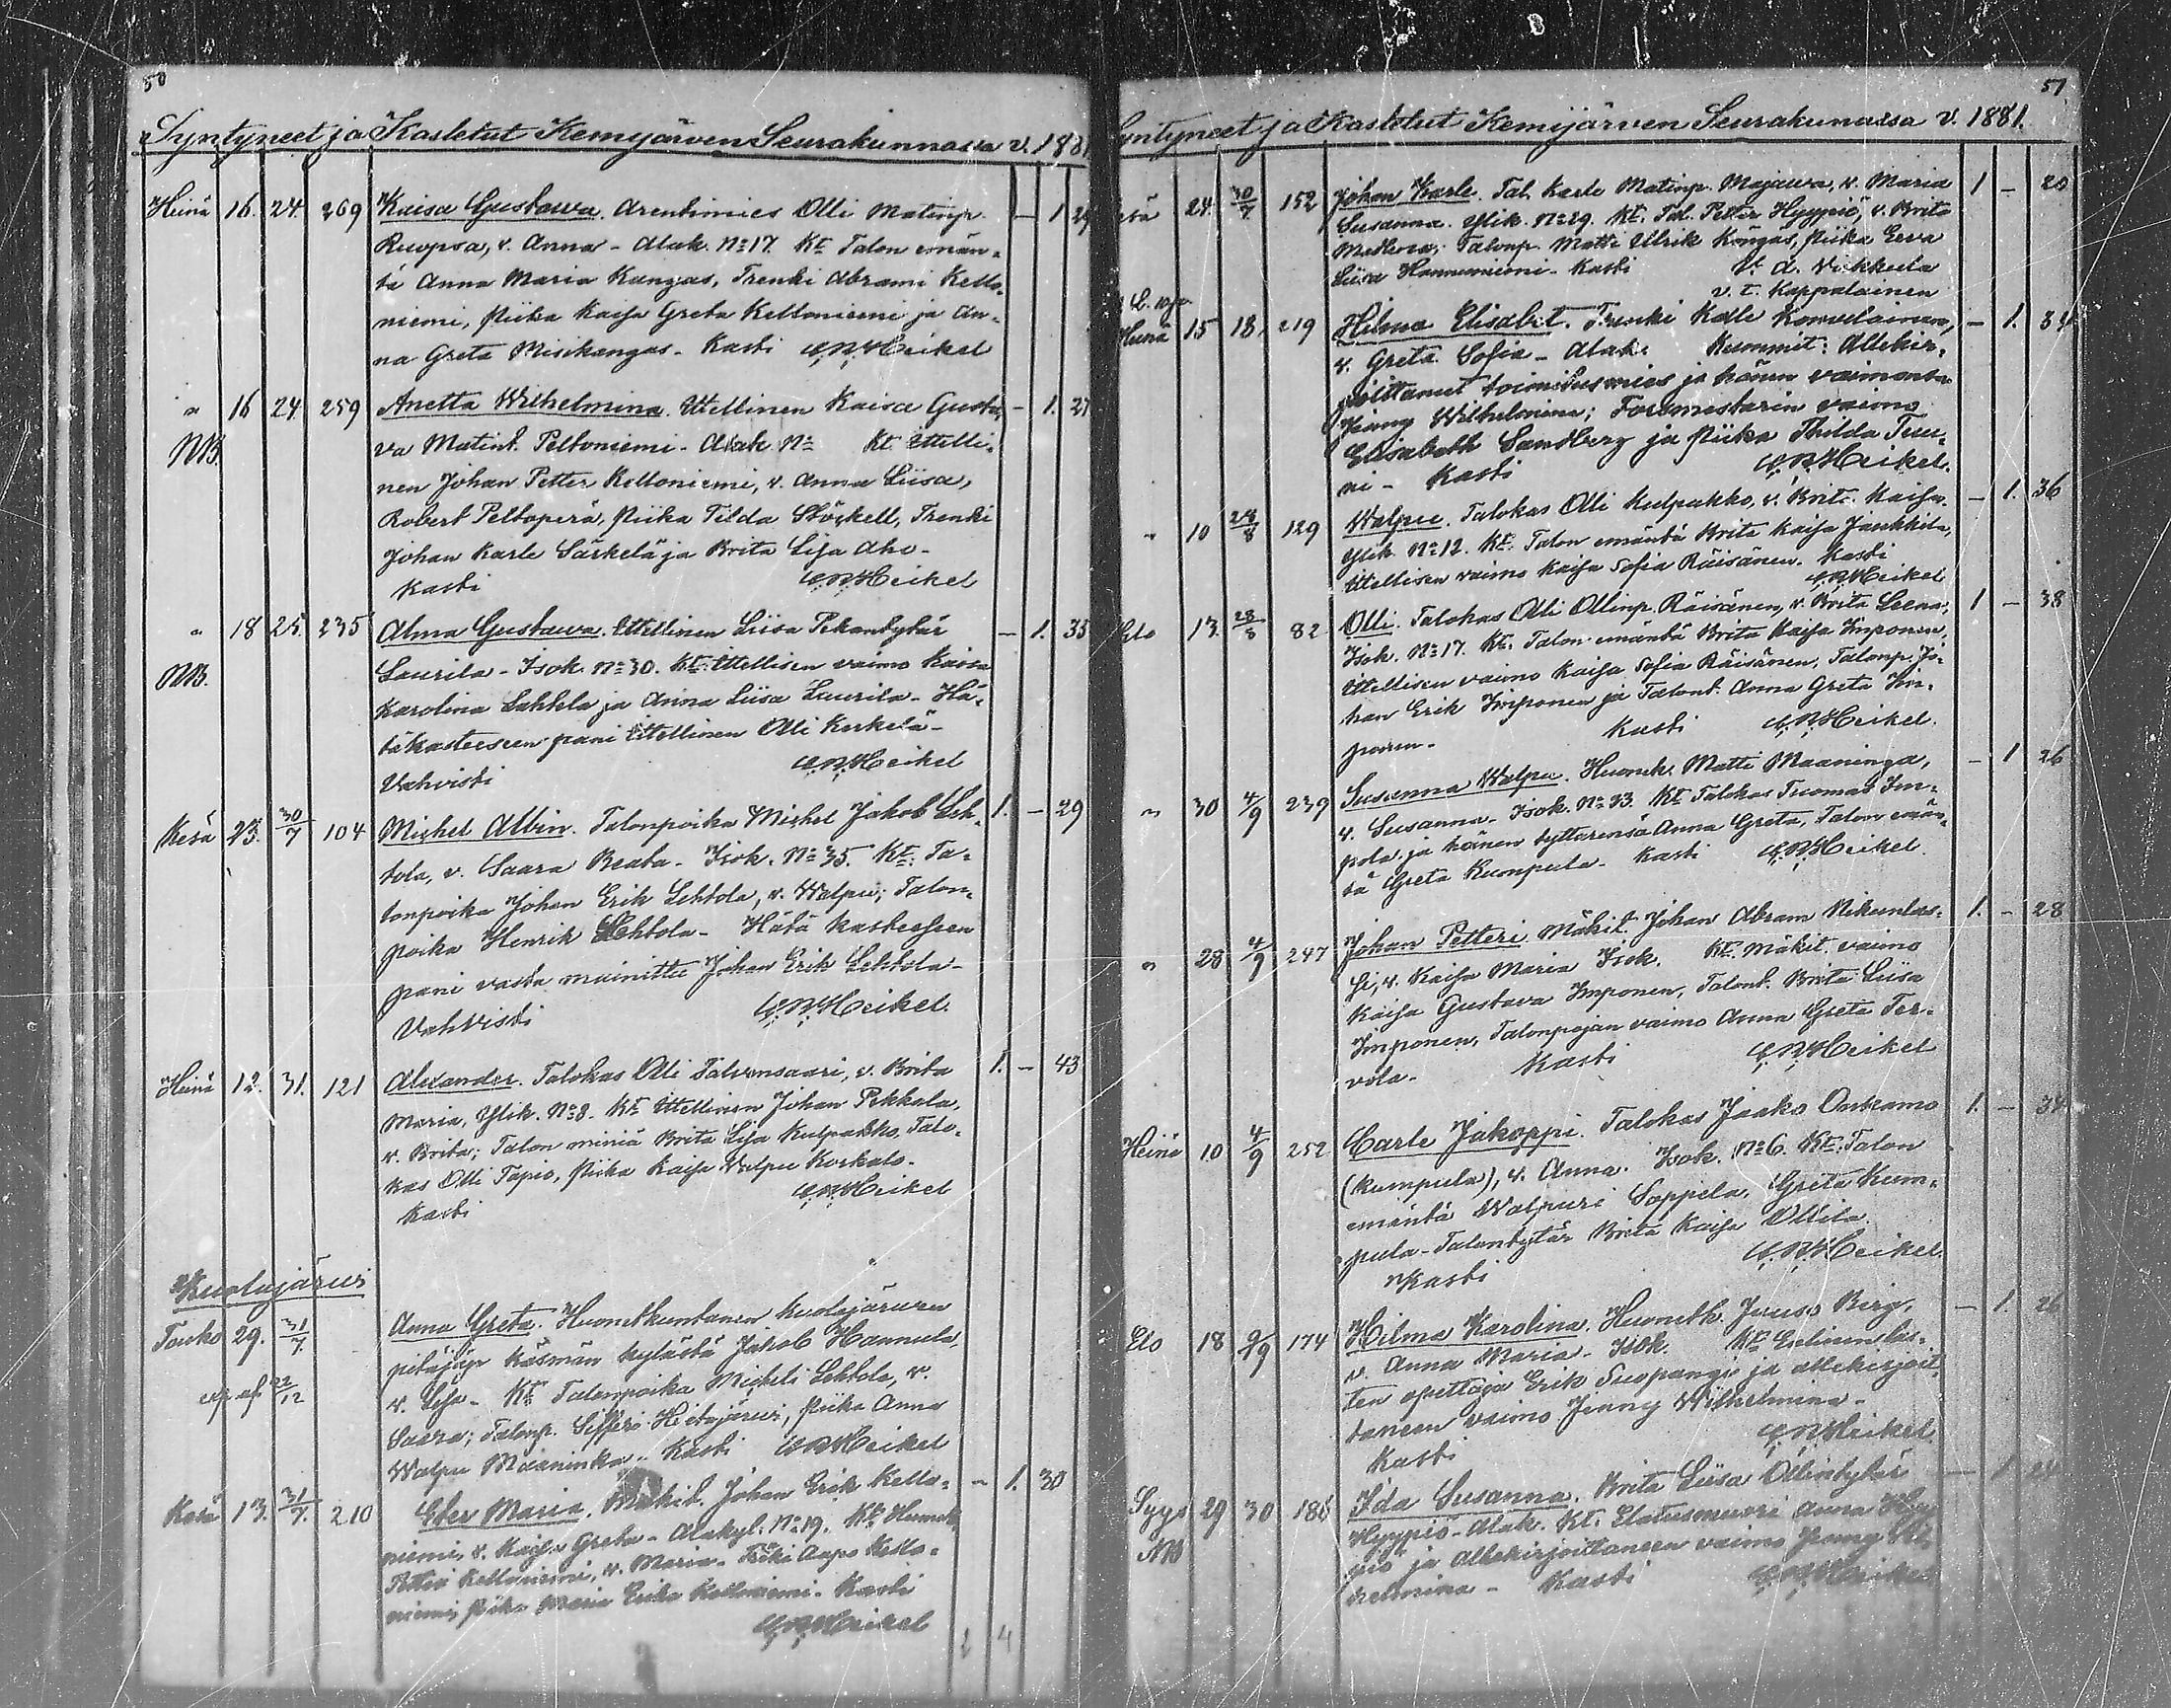 50
Syntyneet ja Kastetut Kemijärven Seurakunnassa v. 1881
Heinä 16. 24. 269 Kaisa Gustawa. Arentimies Olli Matinp. — 1 29
Ruopsa, v. Anna - Alak. No 17. Kt. Talon emän-
tä Anna Maria Kangas, Trenki Abrami Kello-
niemi, Piika Kaisa Greta Kelloniemi ja An-
na Greta Misikangas - Kasti Heikel
" 16 24 259 Anetta Wilhelmina. Ittellinen Kaisa Gusta- — 1. 27
NB. va Matint. Peltoniemi - Alak. No Kt. Ittelli-
nen Johan Petter Kelloniemi, v. Anna Liisa,
Robert Peltoperä, Piika Tilda Stöckell, Trenki
Johan Karle Särkelä ja Brita Lisa Aho -
Kasti Heikel
" 18 25. 235 Alma Gustawa. Ittellinen Liisa Pekantytär — 1. 35
NB. Laurila - Isok. No 30. Kt. Ittellisen vaimo Kaisa
Karolina Lahtela ja Anna Liisa Laurila - Hä-
täkasteeseen pani Ittellinen Olli Kerkelä -
Vahvisti Heikel
Kesä 23. 30/7 104 Mickel Albin. Talonpoika Mickel Jakob Leh- 1. — 29
tola, v. Saara Beata - Isok. No 35. Kt. Ta-
lonpoika Johan Erik Lehtola, v. Walpu; Talon-
poika Henrik Lehtola - Hätä kasteeseen
pani vasta mainittu Johan Erik Lehtola -
Vahvisti Heikel.
Heinä 12. 31. 121 Alexander. Talokas Olli Talvensaari, v. Brita 1. — 43
Maria, Ylik. No 8. Kt. Ittellinen Johan Pekkala,
v. Brita; Talon miniä Brita Lisa Kulpakko, Talo-
kas Olli Tapio, Piika Kaisa Walpu Korkalo.
Kasti Heikel
Kuolajärwi
Touko 29. 31/7 Anna Greta. Huonetkuntanen Kuolajärwen
pitäjän Käsmän kylästä Jakob Hannula,
22/12 v. Lisa - Kt. Talonpoika Mickeli Lehtola, v.
Saara; Talonp. Sifferi Hietajärwi, Piika Anna
Walpu Maaninka. Kasti Heikel
Kesä 13. 31/7. 210 Ester Maria. Mäkit. Johan Erik Kello- — 1. 30
niemi, v. Kaisa Greta - Alakyl. No 19. Kt. Huonek.
Petteri Kelloniemi, v. Maria - Trenki Aapo Kello-
niemi, Piika Maria Erika Kelloniemi. Kasti
Heikel
2 4
51
Syntyneet ja Kastetut Kemijärven Seurakunnassa v. 1881.
Kesä 24. 30/7 152 Johan Karle. Tal. Karle Matinp. Majawa, v. Maria 1 — 20
Susanna. Ylik. No 29. Kt. Tal. Petter Hyypiö, v. Brita
Matlena; Talonp. Matti Ulrik Köngäs, Piika Eeva
Liisa Hannuniemi - Kasti A. Wikkula
v. t. Kappalainen
Heinä 15 18. 219 Hilma Elisabet. Trenki Kalle Korvelainen, — 1. 34
v. Greta Sofia - Alak. Kummit: Allekir-
joittanut toimitusmies ja hänen vaimonsa
Jenny Wilhelmina; Forsmestarin vaimo
Elisabeth Sandberg ja Piika Thilda Tuu-
ni - Kasti Heikel.
" 10 28/8 129 Walpu. Talokas Olli Kulpakko, v. Brit. Kaisa. — 1. 36
Ylik. No 12. Kt. Talon emäntä Brita Kaisa Jaukkila,
Ittellisen vaimo Kaisa Sofia Räisänen. Kasti
Heikel
Elo 13. 28/8 82 Olli. Talokas Olli Ollinp. Räisänen, v. Brita Leena. 1 — 38
Isok. No 17. Kt. Talon emäntä Brita Kaisa Imponen,
Ittellisen vaimo Kaisa Sofia Räisänen, Talonp. Jo-
han Erik Imponen ja Talont. Anna Greta Im-
ponen. Kasti Heikel.
" 30 4/9 239 Susanna Walpu. Huonek. Matti Maaninga, — 1 26
v. Susanna - Isok. No 33. Kt. Talokas Tuomas Im-
pola ja hänen tyttärensä Anna Greta, Talon emän-
tä Greta Kumpula. Kasti Heikel.
" 28 4/9 247 Johan Petteri. Mäkit. Johan Abram Nikunlas- 1. — 28
si, v. Kaisa Maria Isok. Kt. Mäkit. vaimo
Kaisa Gustava Imponen, Talont. Brita Liisa
Imponen, Talonpojan vaimo Anna Greta Ter-
vola - Kasti Heikel
Heinä 10 4/9 252 Carle Jakoppi. Talokas Jaako Ontramo 1. — 34
(Kumpula), v. Anna. Isok. No 6. Kt. Talon
emäntä Walpuri Soppela, Greta Kum-
pula - Talontytär Brita Kaisa Ollila.
Kasti Heikel.
Elo 18 9/9 174 Hilma Karolina. Huonetk. Juuso Birg, — 1. 26
v. Anna Maria - Isok. Kt. las-
ten opettaja Erik Suopangi ja allekirjoit-
taneen vaimo Jenny Wilhelmina -
Kasti Heikel.
Syys 29 30 186 Ida Susanna. Brita Liisa Ollintytär — 1 24
NB Hyypiö - Alak. Kt. Elatusmuori Anna Hyy-
piö ja Allekirjoittaneen vaimo Jenny Wil-
helmina - Kasti Heikel